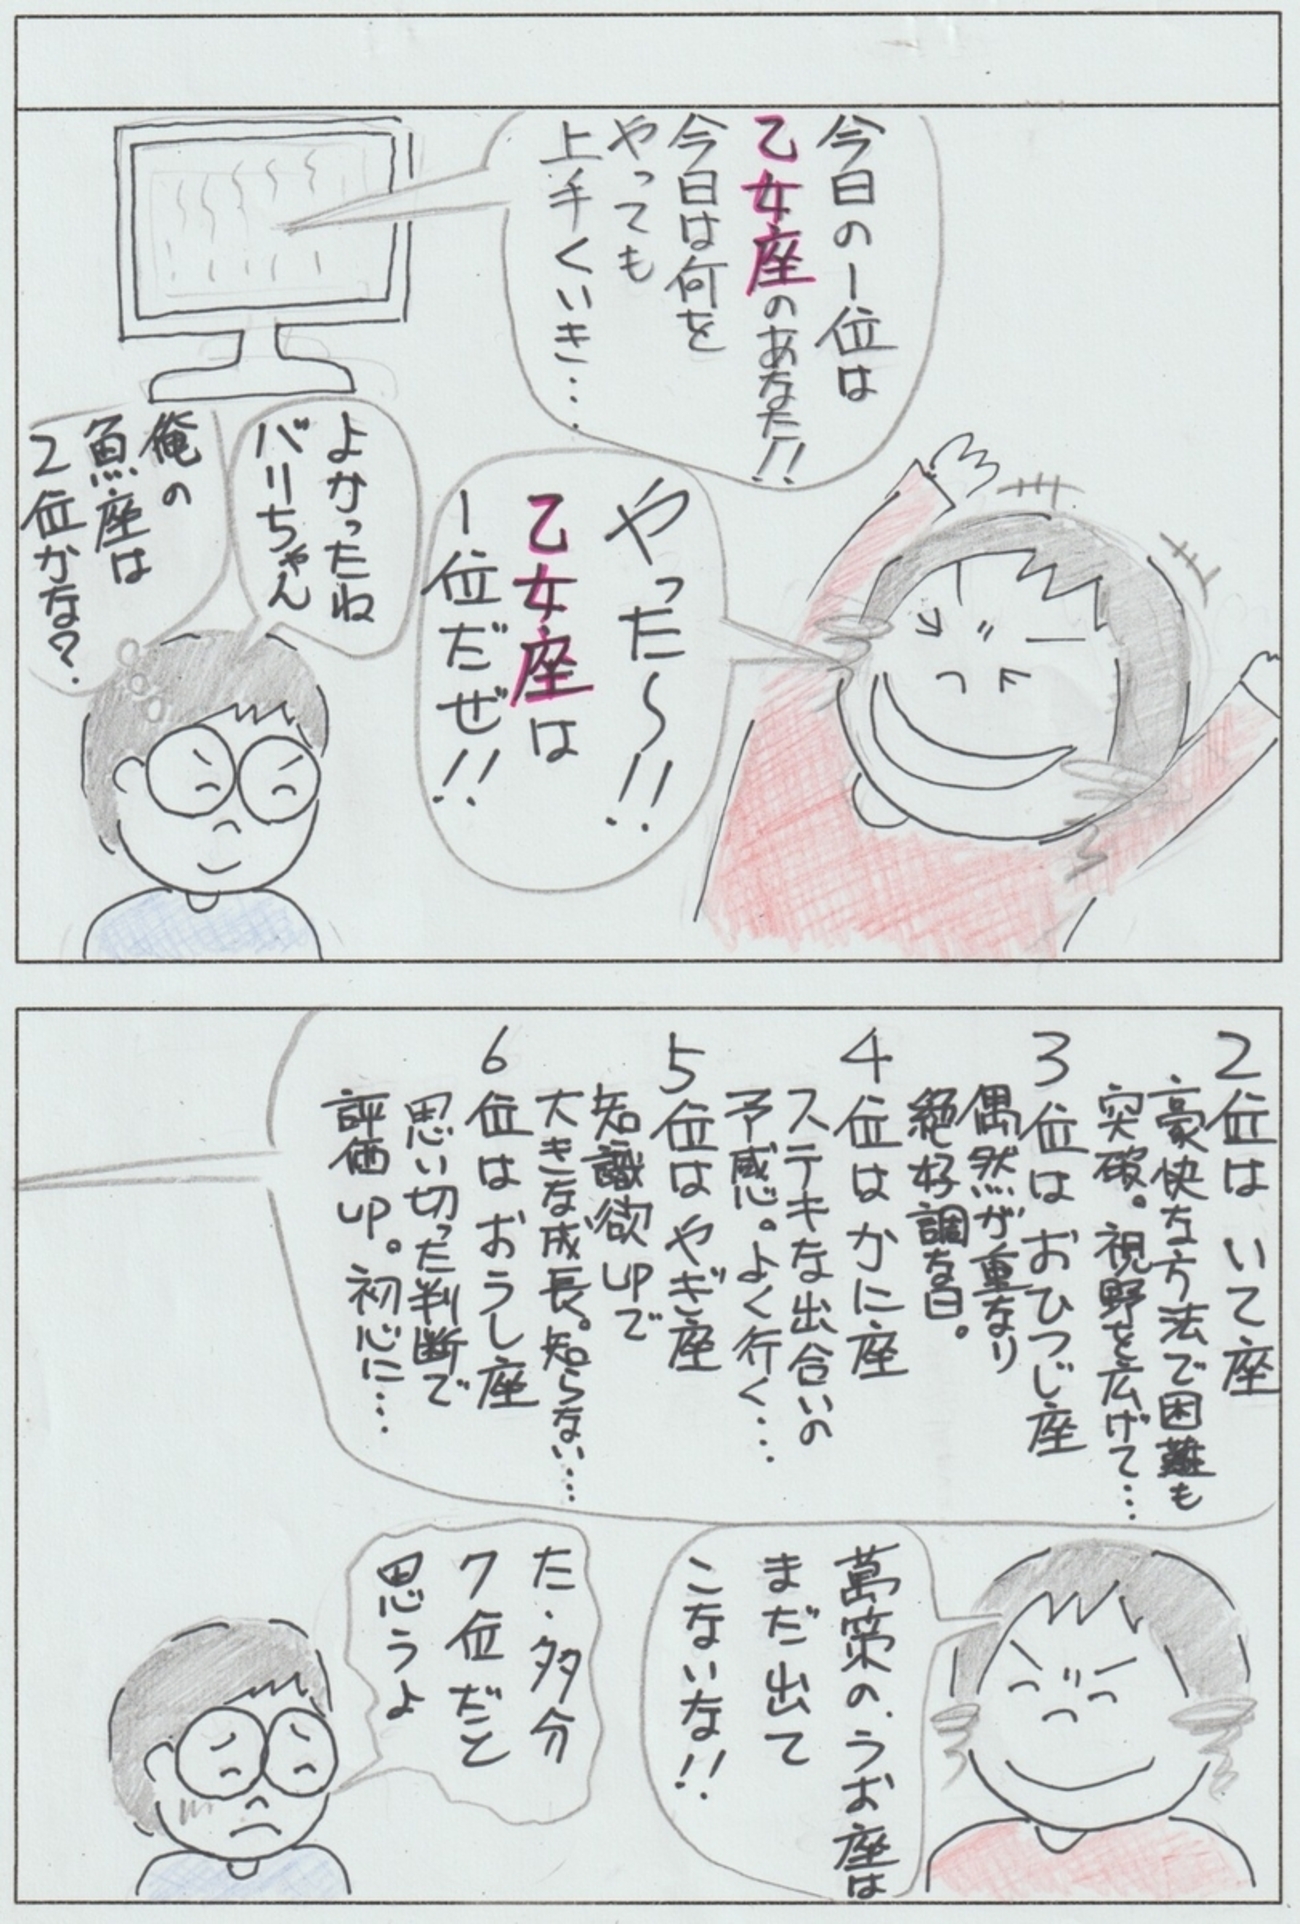 今日の1位は
乙女座のあなた!!
今日は何を
やっても
上手くいき…
やった〜!!
乙女座は
1位だぜ!!
よかったね
バリちゃん
俺の
魚座は
2位かな?
2位は いて座
豪快な方法で困難も
突破。視野を広げて…
3位は おひつじ座
偶然が重なり
絶好調な日。
4位は かに座
ステキな出合いの
予感。よく行く…
5位は やぎ座
知識欲UPで
大きな成長。知らない…
6位は おうし座
思い切った判断で
評価UP。初心に…
萬策の、うお座は
まだ出て
こないな!!
た、多分
7位だと
思うよ